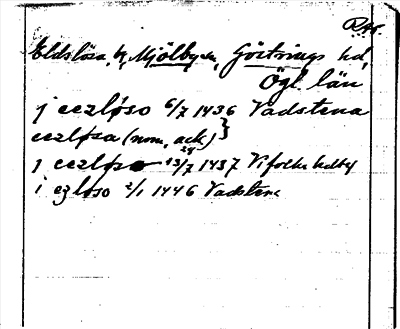 Eldslösa, h, Mjölby sn, Göstrings hd,
Ögl. län
j eezløso 6/7 1436 Vadstena
eezløsa (nom, ack) }
j eezløso 13/7 1437 Vifolke hdbr
i ezløso 2/1 1446 Vadstena